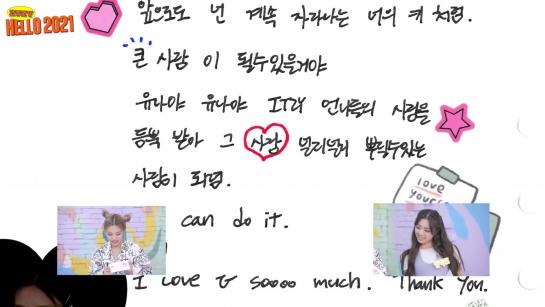 HELLO 2021
앞으로도 넌 계속 자라나는 너의 키 처럼.
큰 사람 이 될수있을거야
유나야 유나야 ITZY 언니들의 사랑을
듬뿍 받아 그 사랑 멀리멀리 뿌릴수있는
사람이 되렴.
can do it.
I love U soooo much. Thank You.
love